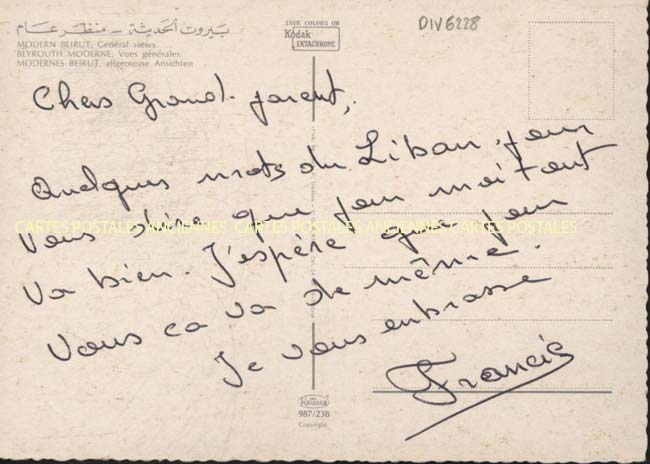 بيروت الحديثة - منظر عام
MODERN BEIRUT, General views
BEYROUTH MODERNE, Vues générales
MODERNES BEIRUT, allgemeine Ansichten
TRUE COLORS OR
Kodak
EKTACHROME
DIV6228
Chers Grand-parent,
Quelques mots du Liban, pour
vous dire que pour moi tout
va bien. J'espère que pour
vous ca va de même.
Je vous enbrasse
Francis
CARTES POSTALES ANCIENNES CARTES POSTALES ANCIENNES CARTES POSTALES
987/238
Copyright